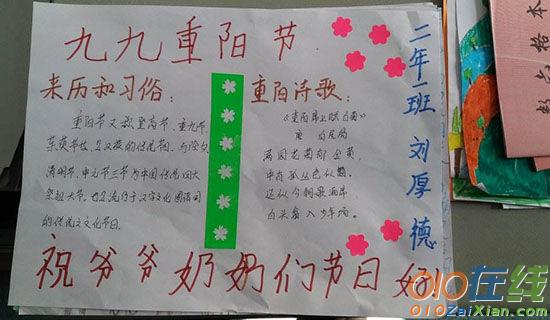 九九重阳节
来历和习俗：
重阳节又叫登高节、重九节、
茱萸节
清明节、中元节三节 中国传统四大
祭祖大节。也是流行于汉字文化圈诸国
的传统文化节日。
重阳诗歌：
唐 白居易
满园花菊郁金黄，
中有孤丛色似霜。
还似今朝歌酒席
白头翁入少年场。
二年一班 刘厚德
祝爷爷奶奶们节日好
数六格本
010在线
010ZaiXian.com